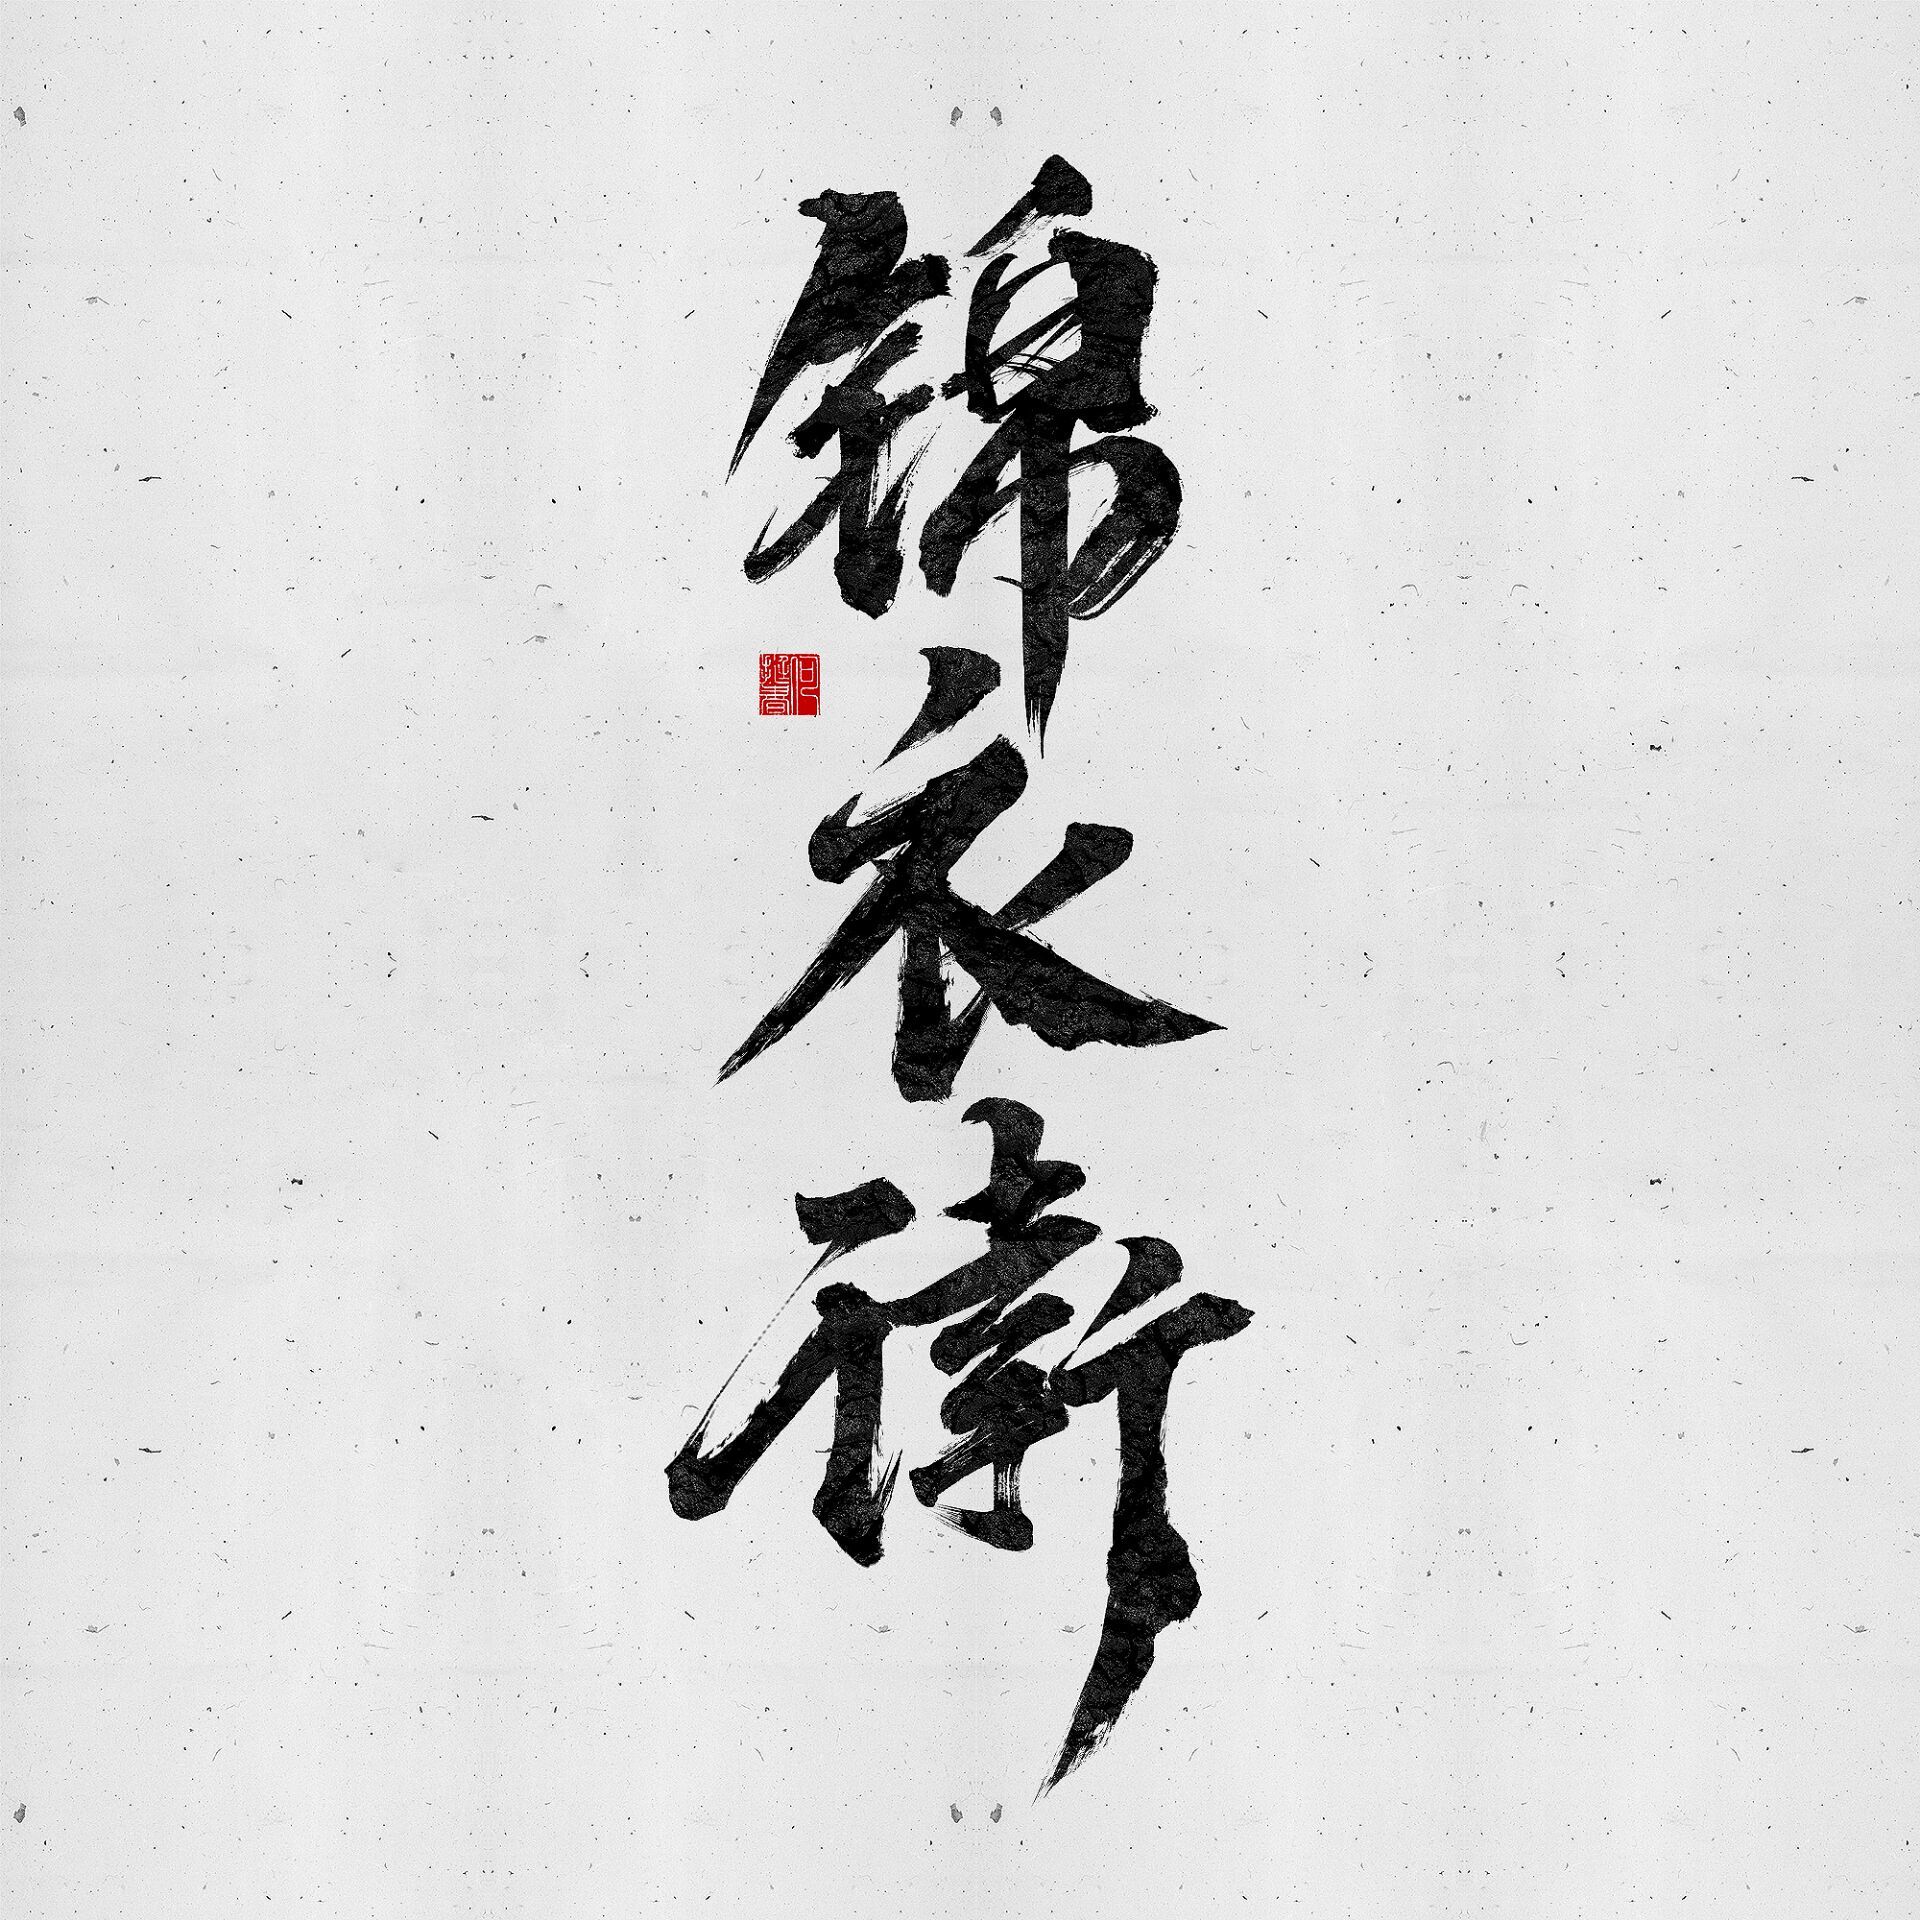 錦衣衛